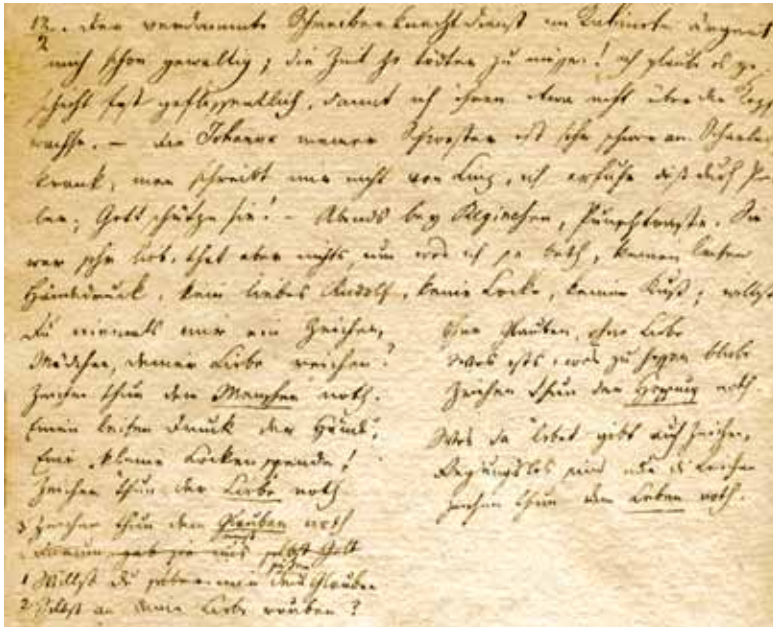 12. der verdammte Schreiberknechtdienst im Kabinete ärgert
2
mich schon gewaltig; die Zeit so tödten zu müssen! ich glaube es ge-
schieht fast geflissentlich, damit ich ihnen etwa nicht über den Kopf
wachse. – die Johanna meiner Schwester ist sehr schwer an Scharlach
krank, man schreibt mir nicht von Linz, ich erfuhr dieß durch
Gott schütze sie! – Abends bey Reginchen, Punschtorte. Sie
war sehr lieb, that aber nichts, um was ich sie bath, keinen leisen
Händedruck, kein liebes Rudolf, keine Locke, keinen Kuß; willst
Du niemals mir ein Zeichen,
Mädchen, deiner Liebe reichen?
Zeichen thun dem Menschen noth.
Einen leisen Druck der Hände,
Eine kleine Lockenspende!
Zeichen thun der Liebe noth
3 Zeichen thun dem Glauben noth
Darum gab sie uns selbst Gott
1 Willst du mir den Glauben
2 Selbst an deine Liebe rauben?
Ohne Glauben, ohne Liebe
Was ists, was zu hoffen bliebe
Zeichen thun der Hoffnung noth.
Was da lebet gibt auch Zeichen,
Regungslos sind nur die Leichen
Zeichen thun dem Leben noth.